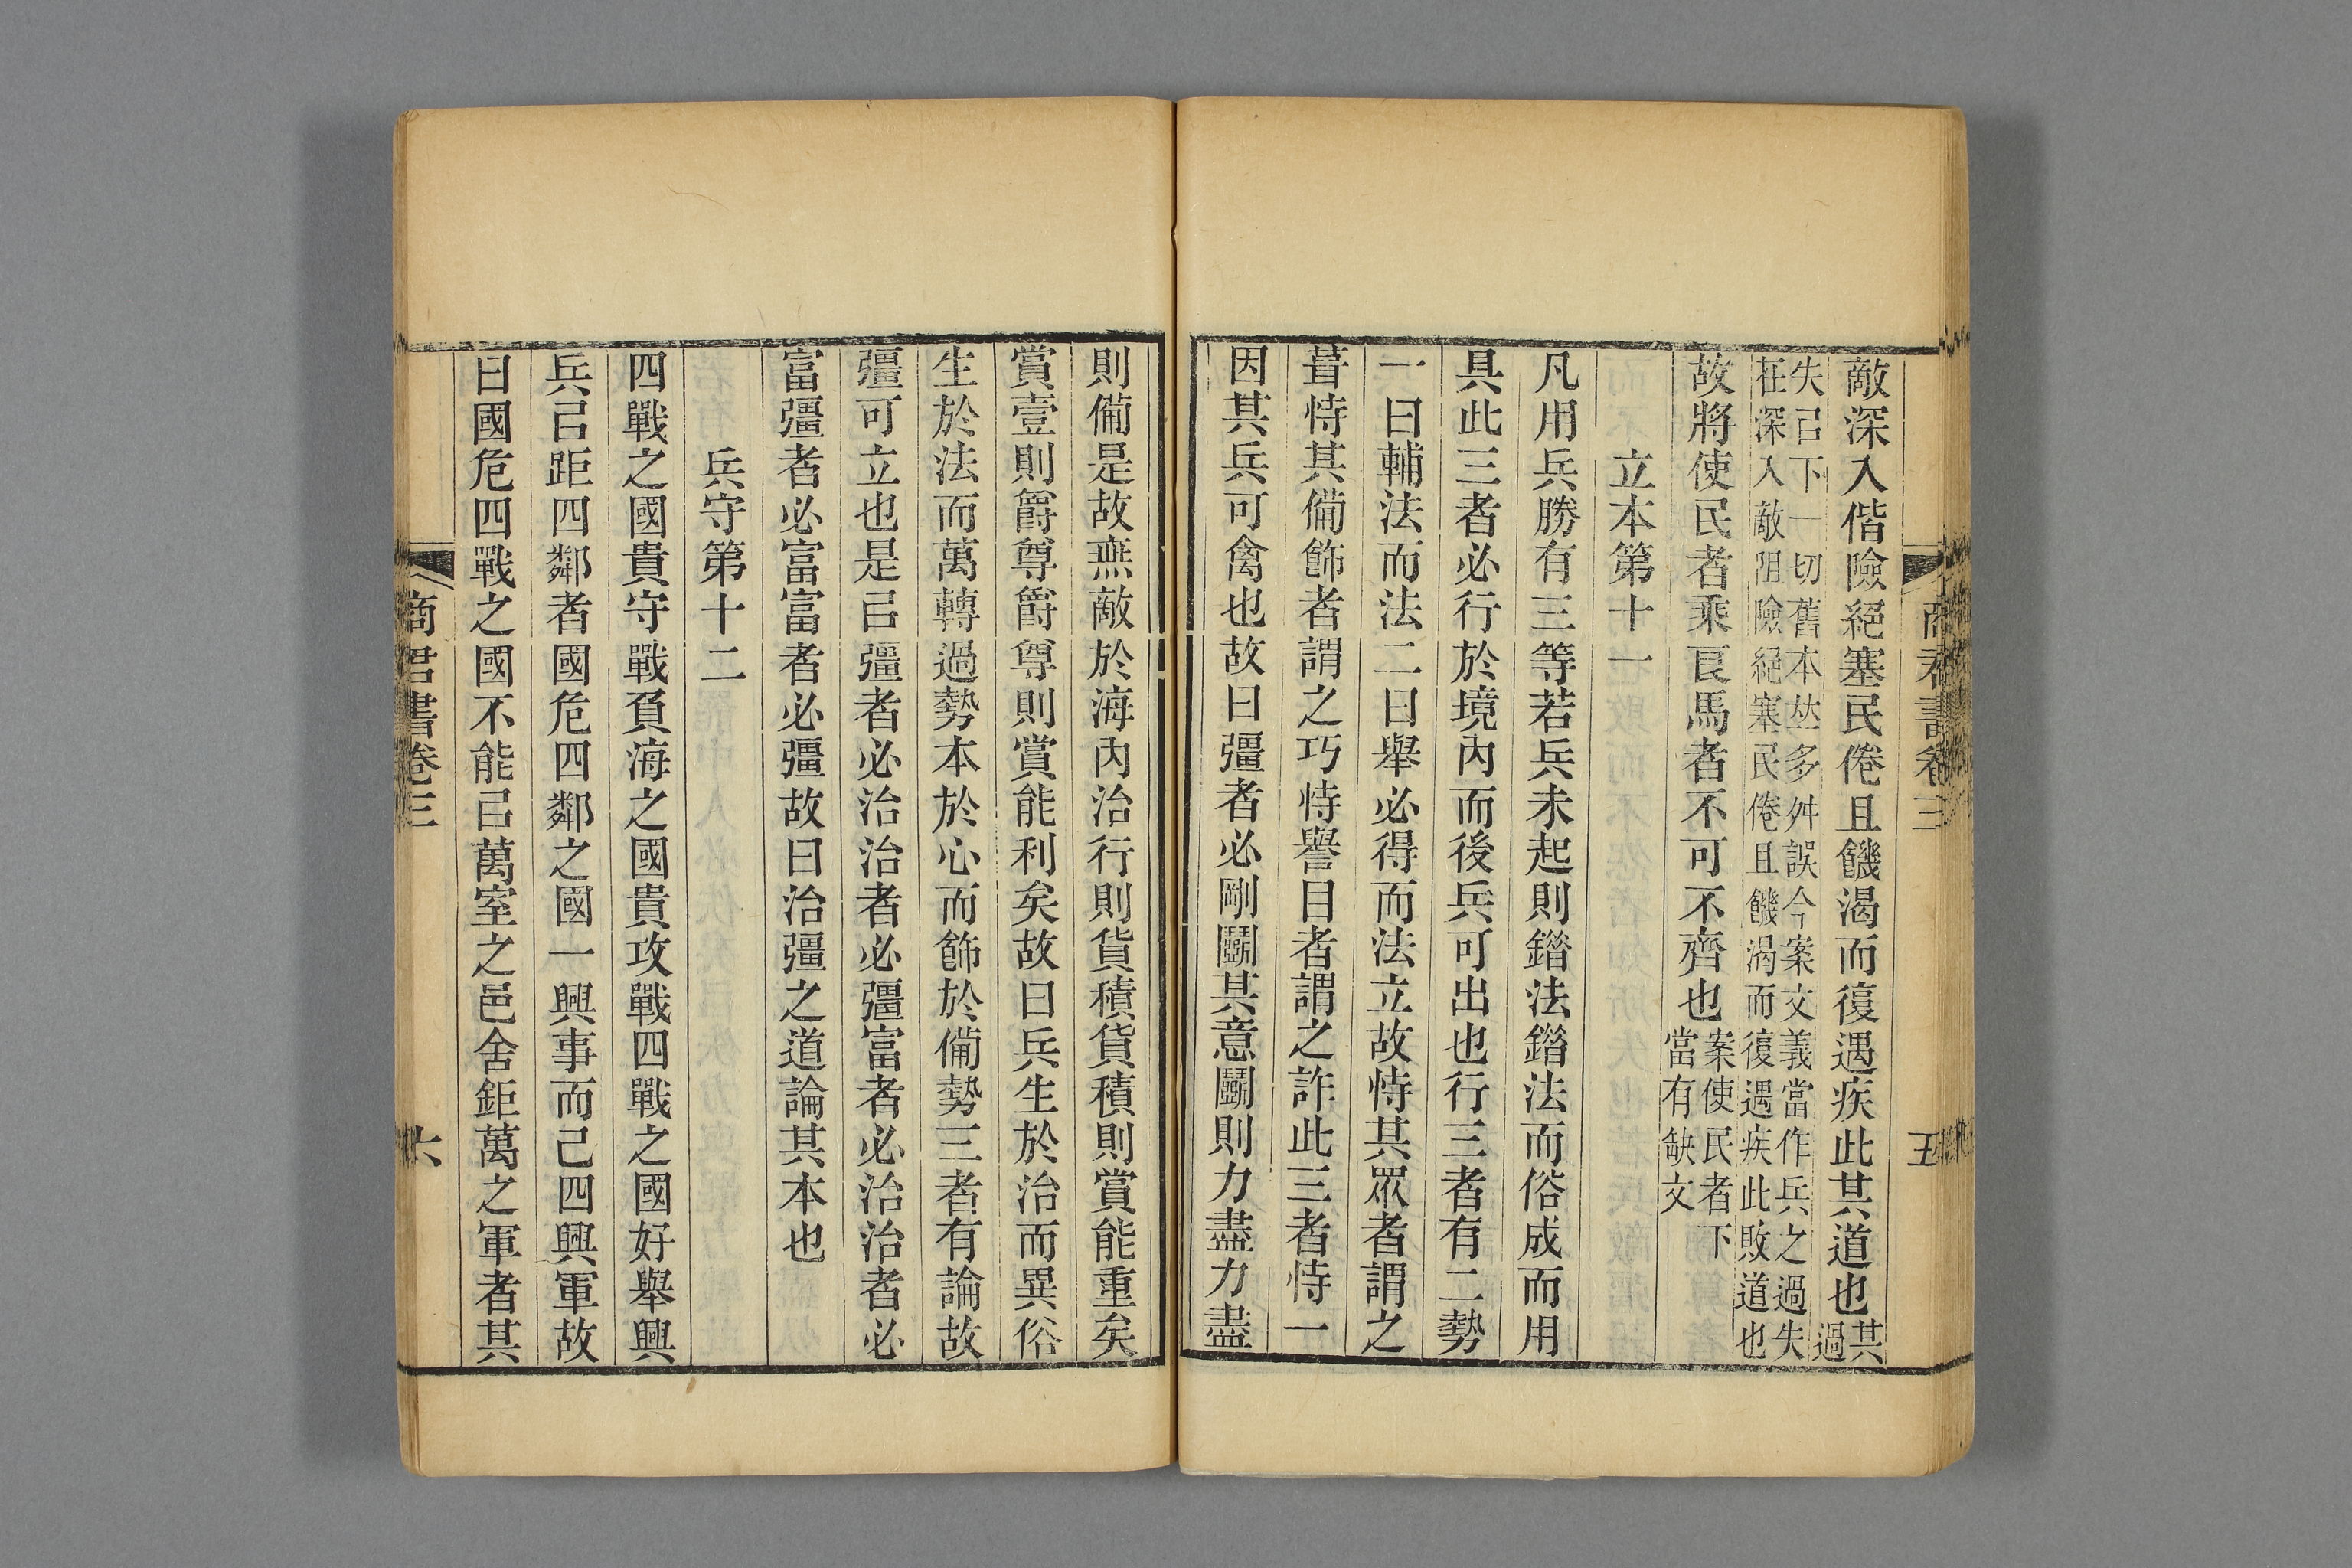 商君書卷三
五
敵深入偕險絕塞民倦且饑渴而復遇疾此其道也其
過
失㠯下一切舊本㳫多舛誤今案文義當作兵之過失
在深入敵阻險絕塞民倦且饑渴而復遇疾此敗道也
故將使民者乘良馬者不可不齊也案使民者下
當有缺文
立本第十一
凡用兵勝有三等若兵未起則錯法錯法而俗成而用
具此三者必行於境內而後兵可出也行三者有二勢
一曰輔法而法二曰舉必得而法立故恃其眾者謂之
葺恃其備飾者謂之巧恃譽目者謂之詐此三者恃一
因其兵可禽也故曰彊者必剛鬭其意鬭則力盡力盡
則備是故無敵於海內治行則貨積貨積則賞能重矣
賞壹則爵尊爵尊則賞能利矣故曰兵生於治而異俗
生於法而萬轉過勢本於心而飾於備勢三者有論故
彊可立也是㠯彊者必治治者必彊富者必治治者必
富彊者必富富者必彊故曰治彊之道論其本也
兵守第十二
四戰之國貴守戰負海之國貴攻戰四戰之國好舉興
兵㠯距四鄰者國危四鄰之國一興事而己四興軍故
曰國危四戰之國不能㠯萬室之邑舍鉅萬之軍者其
商君書卷三
六